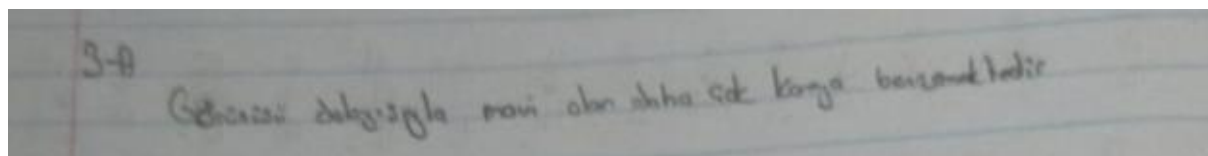 3-A
Görüntüsü dolayısıyla mavi olan daha çok benzemektedir